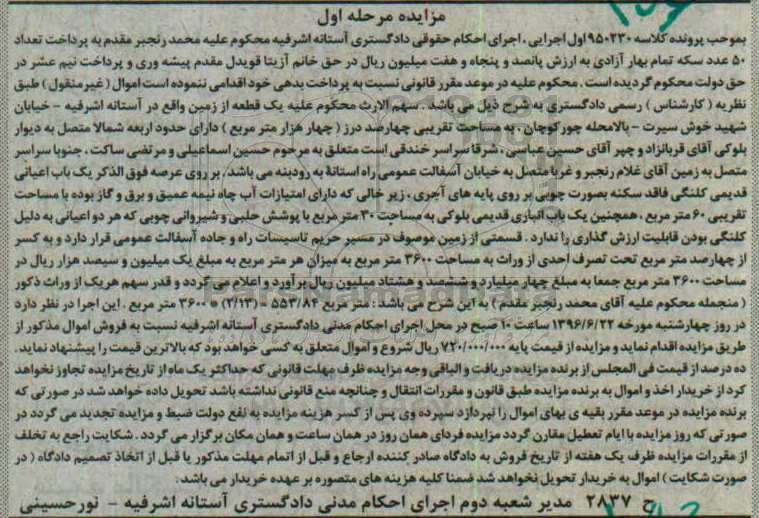 مزایده مرحله اول
بموجب پرونده کلاسه ۹۵۰۲۳۰ اول اجرایی ، اجرای احکام حقوقی دادگستری آستانه اشرفیه محکوم علیه محمد رنجبر مقدم به پرداخت تعداد
۵۰ عدد سکه تمام بهار آزادی به ارزش پانصد و پنجاه و هفت میلیون ریال در حق خانم آزیتا قویدل مقدم پیشه وری و پرداخت نیم عشر در
حق دولت محکوم گردیده است . محکوم علیه در موعد مقرر قانونی نسبت به پرداخت بدهی خود اقدامی ننموده است اموال ( غیر منقول ) طبق
نظریه ( کارشناس ) رسمی دادگستری به شرح ذیل می باشد . سهم الارث محکوم علیه یک قطعه از زمین واقع در آستانه اشرفیه - خیابان
شهید خوش سیرت - بالامحله چورکوچان ، به مساحت تقریبی چهارصد درز ( چهار هزار متر مربع ) دارای حدود اربعه شمالا متصل به دیوار
بلوکی آقای قربانزاد و چپر آقای حسین عباسی ، شرقا سراسر خندقی است متعلق به مرحوم حسین اسماعیلی و مرتضی ساکت ، جنوبا سراسر
متصل به زمین آقای غلام رنجبر و غربا متصل به خیابان آسفالت عمومی راه استانۀ به رودبنه می باشد . بر روی عرصه فوق الذکر یک باب اعیانی
قدیمی کلنگی فاقد سکنه بصورت چوبی بر روی پایه های آجری ، زیر خالی که دارای امتیازات آب چاه نیمه عمیق و برق و گاز بوده با مساحت
تقریبی ۶۰ متر مربع ، همچنین یک باب انباری قدیمی بلوکی به مساحت ۳۰ متر مربع با پوشش حلبی و شیروانی چوبی که هر دو اعیانی به دلیل
کلنگی بودن قابلیت ارزش گذاری را ندارد . قسمتی از زمین موصوف در مسیر حریم تاسیسات راه و جاده آسفالت عمومی قرار دارد و به کسر
از چهارصد متر مربع تحت تصرف احدی از وراث به مساحت ۳۶۰۰ متر مربع به میزان هر متر مربع به مبلغ یک میلیون و سیصد هزار ریال در
مساحت ۳۶۰۰ متر مربع جمعا به مبلغ چهار میلیارد و ششصد و هشتاد میلیون ریال برآورد و اعلام می گردد و قدر سهم هریک از وراث ذکور
( منجمله محکوم علیه آقای محمد رنجبر مقدم ) به این شرح می باشد : متر مربع ۵۵۳/۸۴ = (۲/۱۳) * ۳۶۰۰ متر مربع . این اجرا در نظر دارد
در روز چهارشنبه مورخه ۱۳۹۶/۶/۲۲ ساعت ۱۰ صبح در محل اجرای احکام مدنی دادگستری آستانه اشرفیه نسبت به فروش اموال مذکور از
طریق مزایده اقدام نماید و مزایده از قیمت پایه ۷۲۰/۰۰۰/۰۰۰ ریال شروع و اموال متعلق به کسی خواهد بود که بالاترین قیمت را پیشنهاد نماید .
ده درصد از قیمت فی المجلس از برنده مزایده دریافت و الباقی وجه مزایده ظرف مهلت قانونی که حداکثر یک ماه از تاریخ مزایده تجاوز نخواهد
کرد از خریدار اخذ و اموال به برنده مزایده طبق قانون و مقررات انتقال و چنانچه منع قانونی نداشته باشد تحویل داده خواهد شد در صورتی که
برنده مزایده در موعد مقرر بقیه ی بهای اموال را نپردازد سپرده وی پس از کسر هزینه مزایده به نفع دولت ضبط و مزایده تجدید می گردد در
صورتی که روز مزایده با ایام تعطیل مقارن گردد مزایده فردای همان روز در همان ساعت و همان مکان برگزار می گردد . شکایت راجع به تخلف
از مقررات مزایده ظرف یک هفته از تاریخ فروش به دادگاه صادر کننده ارجاع و قبل از اتمام مهلت مذکور یا قبل از اتخاذ تصمیم دادگاه ( در
صورت شکایت ) اموال به خریدار تحویل نخواهد شد ضمنا کلیه هزینه های متصوره بر عهده خریدار می باشد .
ح ۲۸۳۷ مدیر شعبه دوم اجرای احکام مدنی دادگستری آستانه اشرفیه - نورحسینی